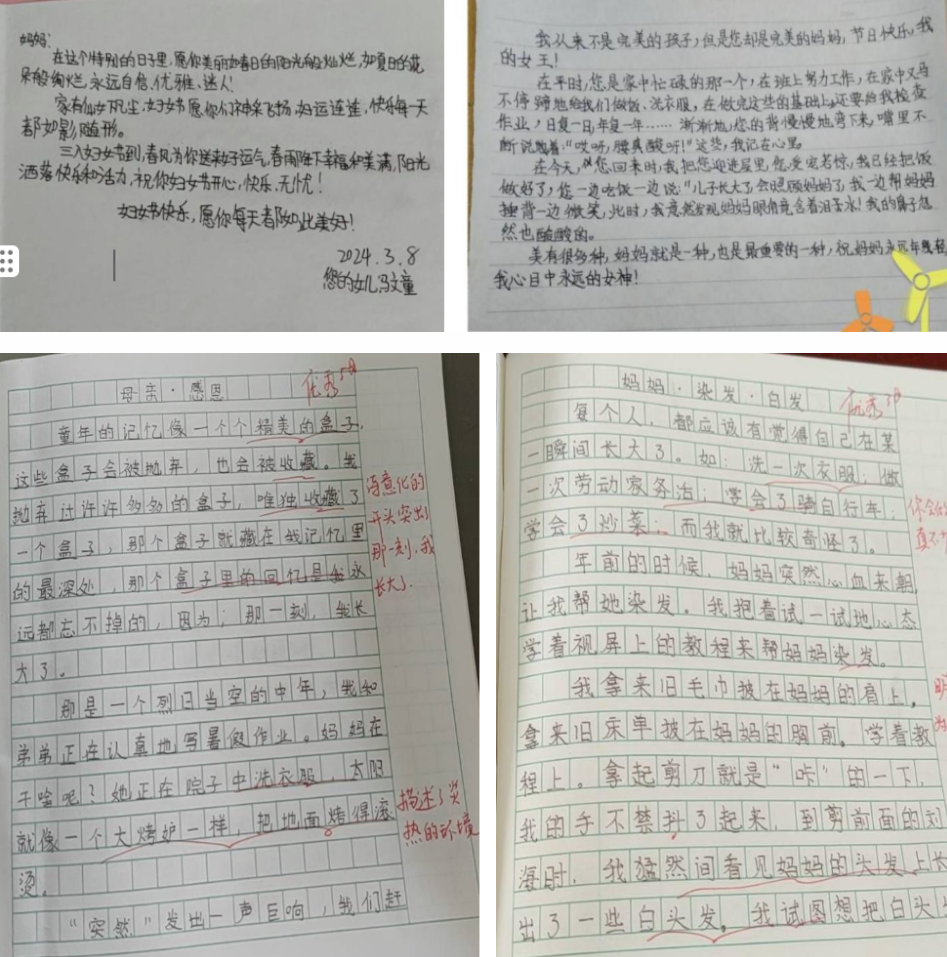 妈妈:
在这个特别的日子里,愿你美丽如春日的阳光般灿烂,如夏日的花
朵般绚烂,永远自信、优雅、迷人!
家有仙女下凡尘,妇女节愿你们神采飞扬,好运连连,快乐每一天
都如影随形。
三八妇女节到,春风为你送来好运气,春雨降下幸福和美满,阳光
洒落快乐和活力,祝你妇女节开心,快乐,无忧!
妇女节快乐,愿你每天都如此美好!
2024.3.8
您的女儿冯文童
我从来不是完美的孩子,但是您却是完美的妈妈,节日快乐,我
的女王!
在平时,您是家中忙碌的那一个,在班上努力工作,在家中又马
不停蹄地给我们做饭、洗衣服,在做完这些的基础上还要给我检查
作业,日复一日,年复一年……渐渐地,您的背慢慢地弯下来,嘴里不
断说着:"哎呀,腰真酸呀!"这些,我记在心里。
在今天,您回来时,我把您迎进屋里,您受宠若惊,我已经把饭
做好了,您一边吃饭一边说:"儿子长大了,会照顾妈妈了,我一边帮妈妈
捶背一边微笑,此时,我竟然发现妈妈眼角竟含着泪水!我的鼻子忽
然也酸酸的。
美有很多种,妈妈就是一种,也是最重要的一种,祝妈妈永远年轻
我心目中永远的女神!
母亲·感恩
优秀
童年的记忆像一个个精美的盒子,
这些盒子会被抛弃,也会被收藏。我
抛弃过许许多多的盒子,唯独收藏了
一个盒子,那个盒子就藏在我记忆里
的最深处,那个盒子里的回忆是我永
远都忘不掉的,因为,那一刻,我长
大了。
诗意化的
开头突出
那一刻,我
长大了
那是一个烈日当空的中年,我和
弟弟正在认真地写暑假作业。妈妈在
干啥呢?她正在院子中洗衣服,太阳
就像一个大烤炉一样,把地面烤得滚
烫。
描述了炎
热的环境
"突然"发出一声巨响,我们赶
妈妈·染发·白发
优秀
每个人,都应该有觉得自己在某
一瞬间长大了。如:洗一次衣服;做
一次劳动家务活;学会了骑自行车;
学会了炒菜;而我就比较奇怪了。
年前的时候,妈妈突然心血来朝,
让我帮她染发。我抱着试一试地心态
学着视屏上的教程来帮妈妈染发。
我拿来旧毛巾披在妈妈的肩上,
拿来旧床单披在妈妈的胸前。学着教
程上。拿起剪刀就是"咔"的一下,
我的手不禁抖了起来,到剪前面的刘
海时,我猛然间看见妈妈的头发上长
出了一些白头发。我试图想把白头